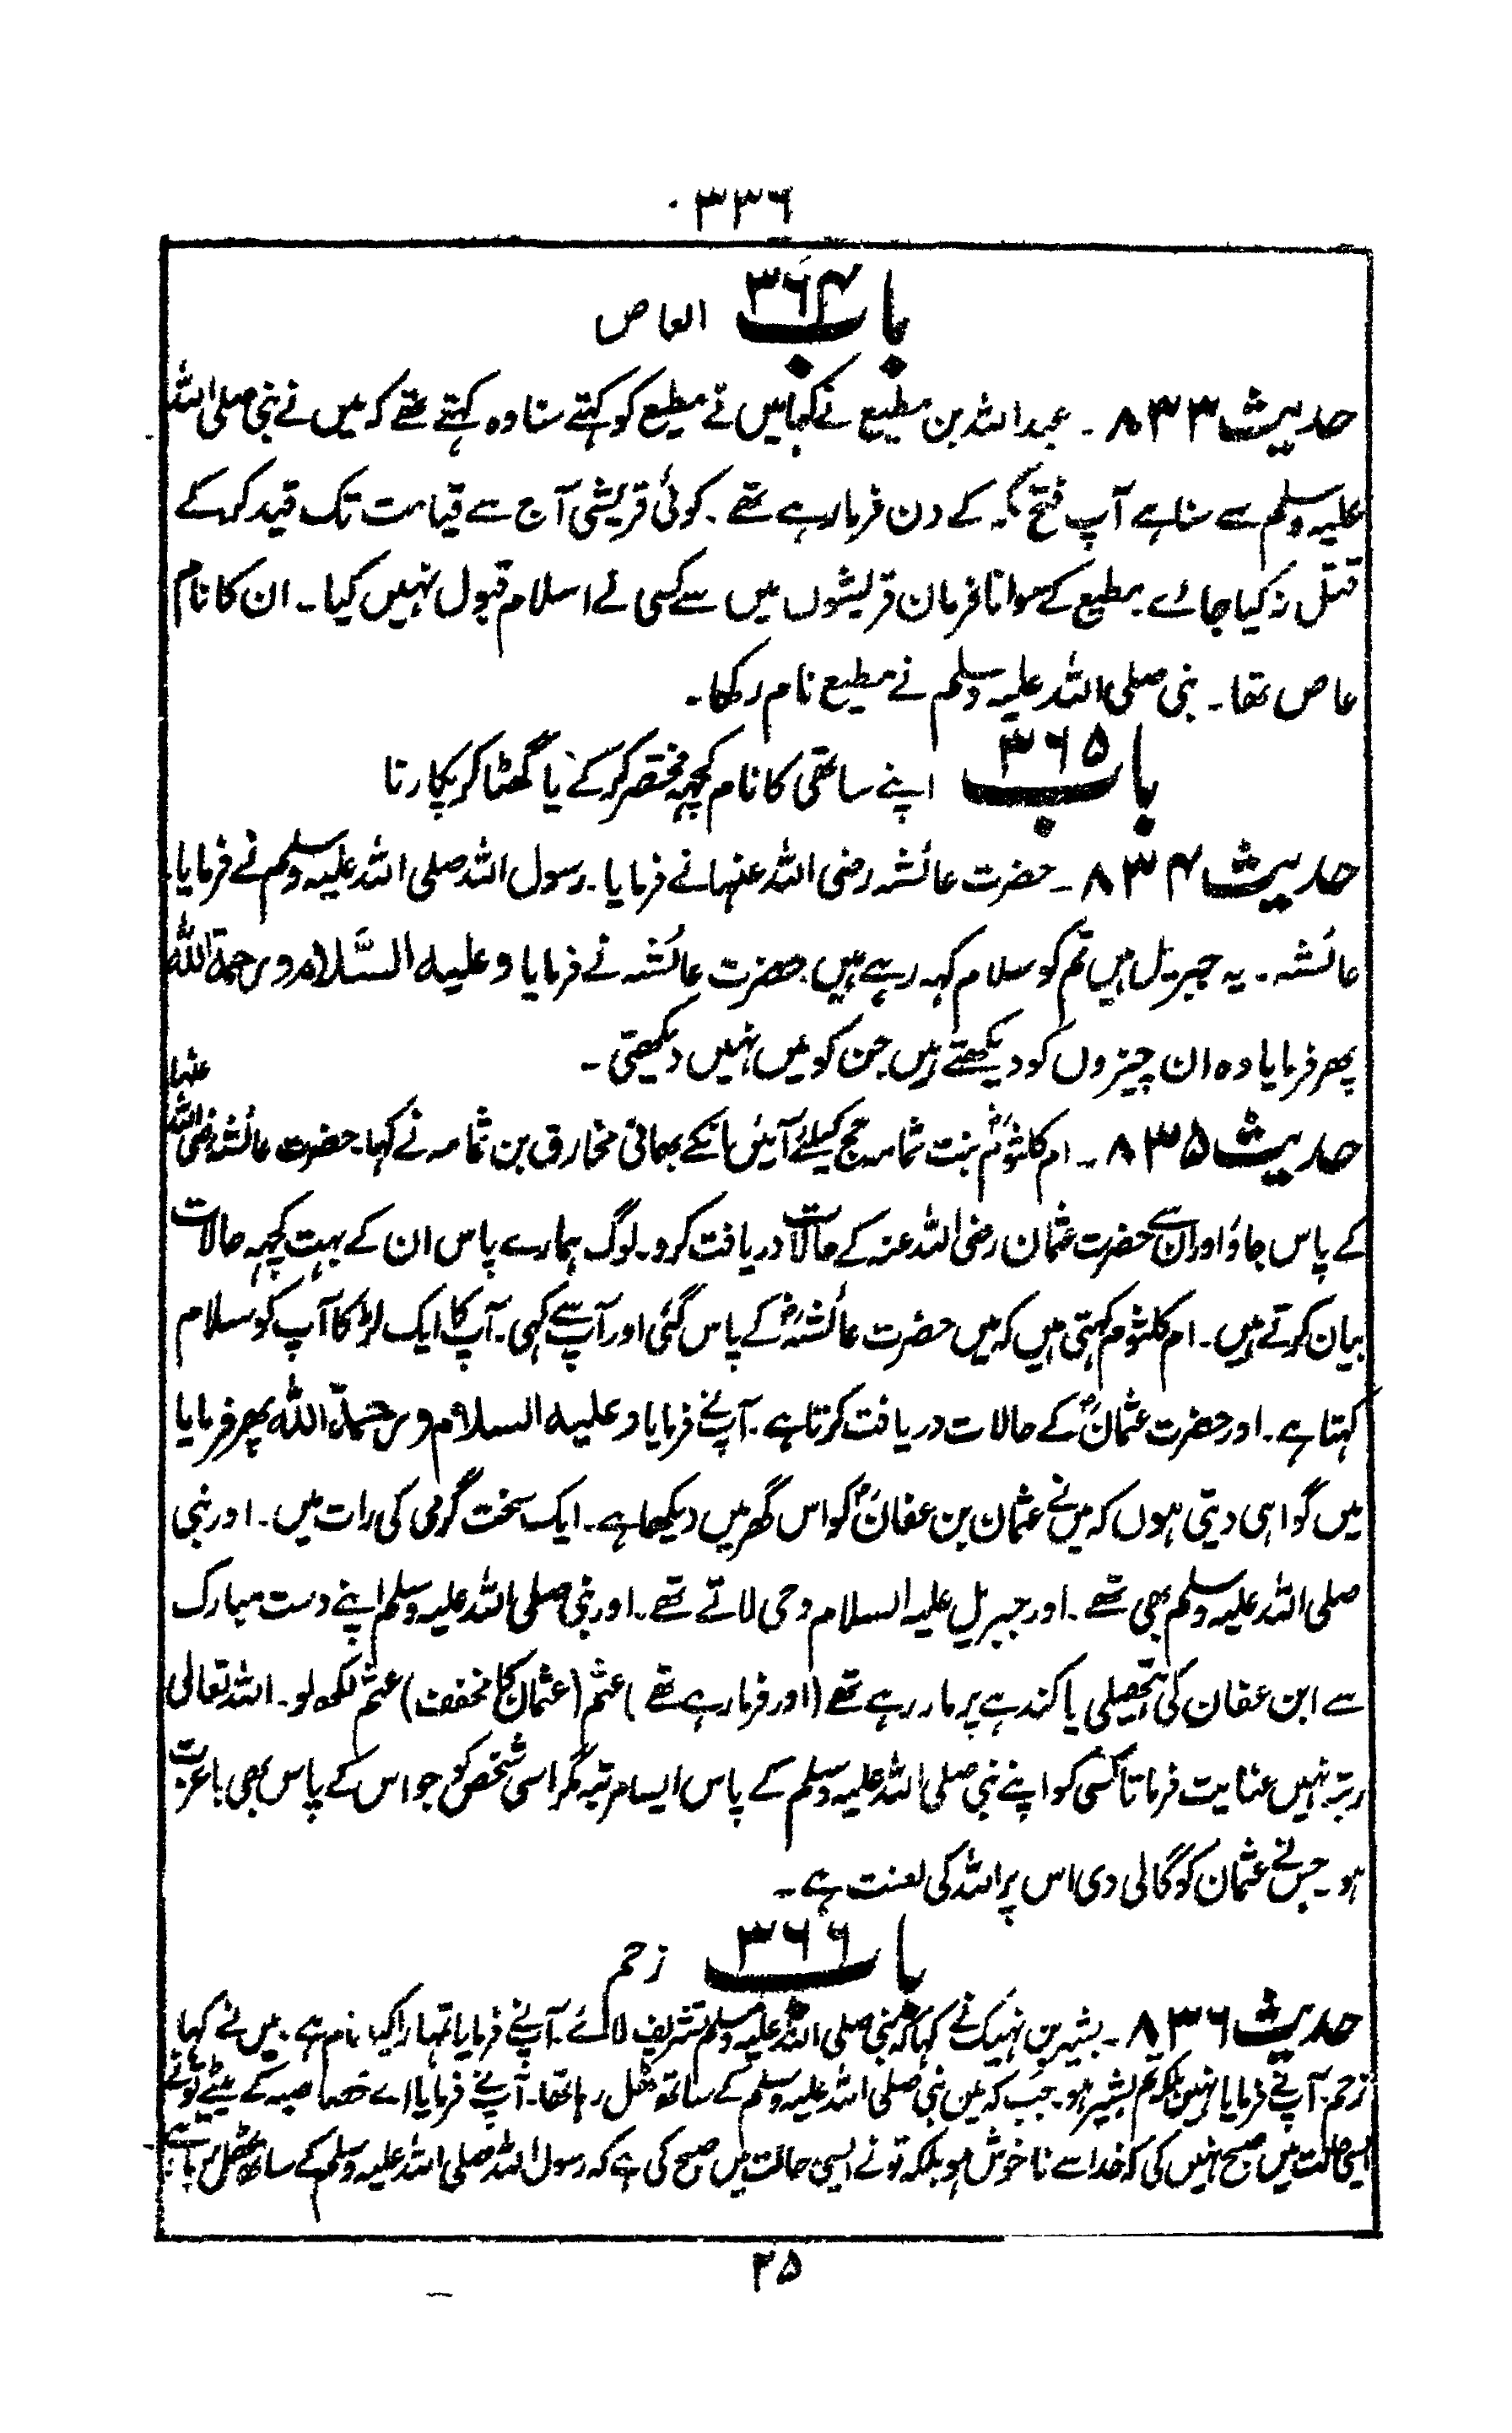 ۳۳۶
باب ۳۶۴ العاص
حدیث ۸۳۳ ۔ عبداللہ بن مطیع نے کہا میں نے مطیع کو کہتے سنا وہ کہتے تھے کہ میں نے نبی صلی اللہ
علیہ وسلم سے سنا ہے آپ فتح مکہ کے دن فرما رہے تھے ۔ کوئی قریشی آج سے قیامت تک قید کر کے
قتل نہ کیا جائے مطیع کے سوا نافرمان قریشوں میں سے کسی نے اسلام قبول نہیں کیا ۔ ان کا نام
عاص تھا ۔ نبی صلی اللہ علیہ وسلم نے مطیع نام رکھا ۔
باب ۳۶۵ اپنے ساتھی کا نام کچہہ مختصر کر کے یا گھٹا کر پکارنا
حدیث ۸۳۴ ۔ حضرت عائشہ رضی اللہ عنہا نے فرمایا ۔ رسول اللہ صلی اللہ علیہ وسلم نے فرمایا
عائشہ ۔ یہ جبریل ہیں تم کو سلام کہہ رہے ہیں حضرت عائشہ نے فرمایا و علیہ السَّلام ورحمۃ اللہ
پھر فرمایا وہ ان چیزوں کو دیکھتے ہیں جن کو میں نہیں دیکھتی ۔
حدیث ۸۳۵ ۔ ام کلثومؓ بنت ثمامہ حج کیلئے آئیں انکے بھائی مخارق بن ثمامہ نے کہا ۔ حضرت عائشہ رضی اللہ عنہا
کے پاس جاؤ اور ان سے حضرت عثمان رضی اللہ عنہ کے حالات دریافت کرو ۔ لوگ ہمارے پاس ان کے بہت کچہہ حالات
بیان کرتے ہیں ۔ ام کلثوم کہتی ہیں کہ میں حضرت عائشہؓ کے پاس گئی اور آپ سے کہی ۔ آپ کا ایک لڑکا آپ کو سلام
کہتا ہے ۔ اور حضرت عثمانؓ کے حالات دریافت کرتا ہے ۔ آپنے فرمایا و علیہ السلام ورحمۃ اللہ پھر فرمایا
میں گواہی دیتی ہوں کہ میں نے عثمان بن عفانؓ کو اس گھر میں دیکھا ہے ۔ ایک سخت گرمی کی رات میں ۔ اور نبی
صلی اللہ علیہ وسلم بھی تھے ۔ اور جبریل علیہ السلام وحی لاتے تھے ۔ اور نبی صلی اللہ علیہ وسلم اپنے دست مبارک
سے ابن عفان کی ہتھیلی یا کندہے پر مار رہے تھے (اور فرما رہے تھے) عثم (عثمان کا مخفف) عثم لکھ لو ۔ اللہ تعالی
رتبہ نہیں عنایت فرماتا کسی کو اپنے نبی صلی اللہ علیہ وسلم کے پاس ایسا مرتبہ مگر اسی شخص کو جو اس کے پاس بھی باعزت
ہو ۔ جس نے عثمان کو گالی دی اس پر اللہ کی لعنت ہے ۔
باب ۳۶۶ زحم
حدیث ۸۳۶ ۔ بشیر بن نہیک نے کہا کہ نبی صلی اللہ علیہ وسلم تشریف لائے ۔ آپنے فرمایا تمہارا کیا نام ہے ۔ میں نے کہا
زحم ۔ آپنے فرمایا نہیں بلکہ تم بشیر ہو ۔ جب کہ میں نبی صلی اللہ علیہ وسلم کے ساتھ ٹہل رہا تھا ۔ آپنے فرمایا اے خصاصیہ کے بیٹے تونے
ایسی حالت میں صبح نہیں کی کہ خدا سے ناخوش ہو بلکہ تو نے ایسی حالت میں صبح کی ہے کہ رسول اللہ صلی اللہ علیہ وسلم کے ساتھ ٹہل رہا ہے
۲۵